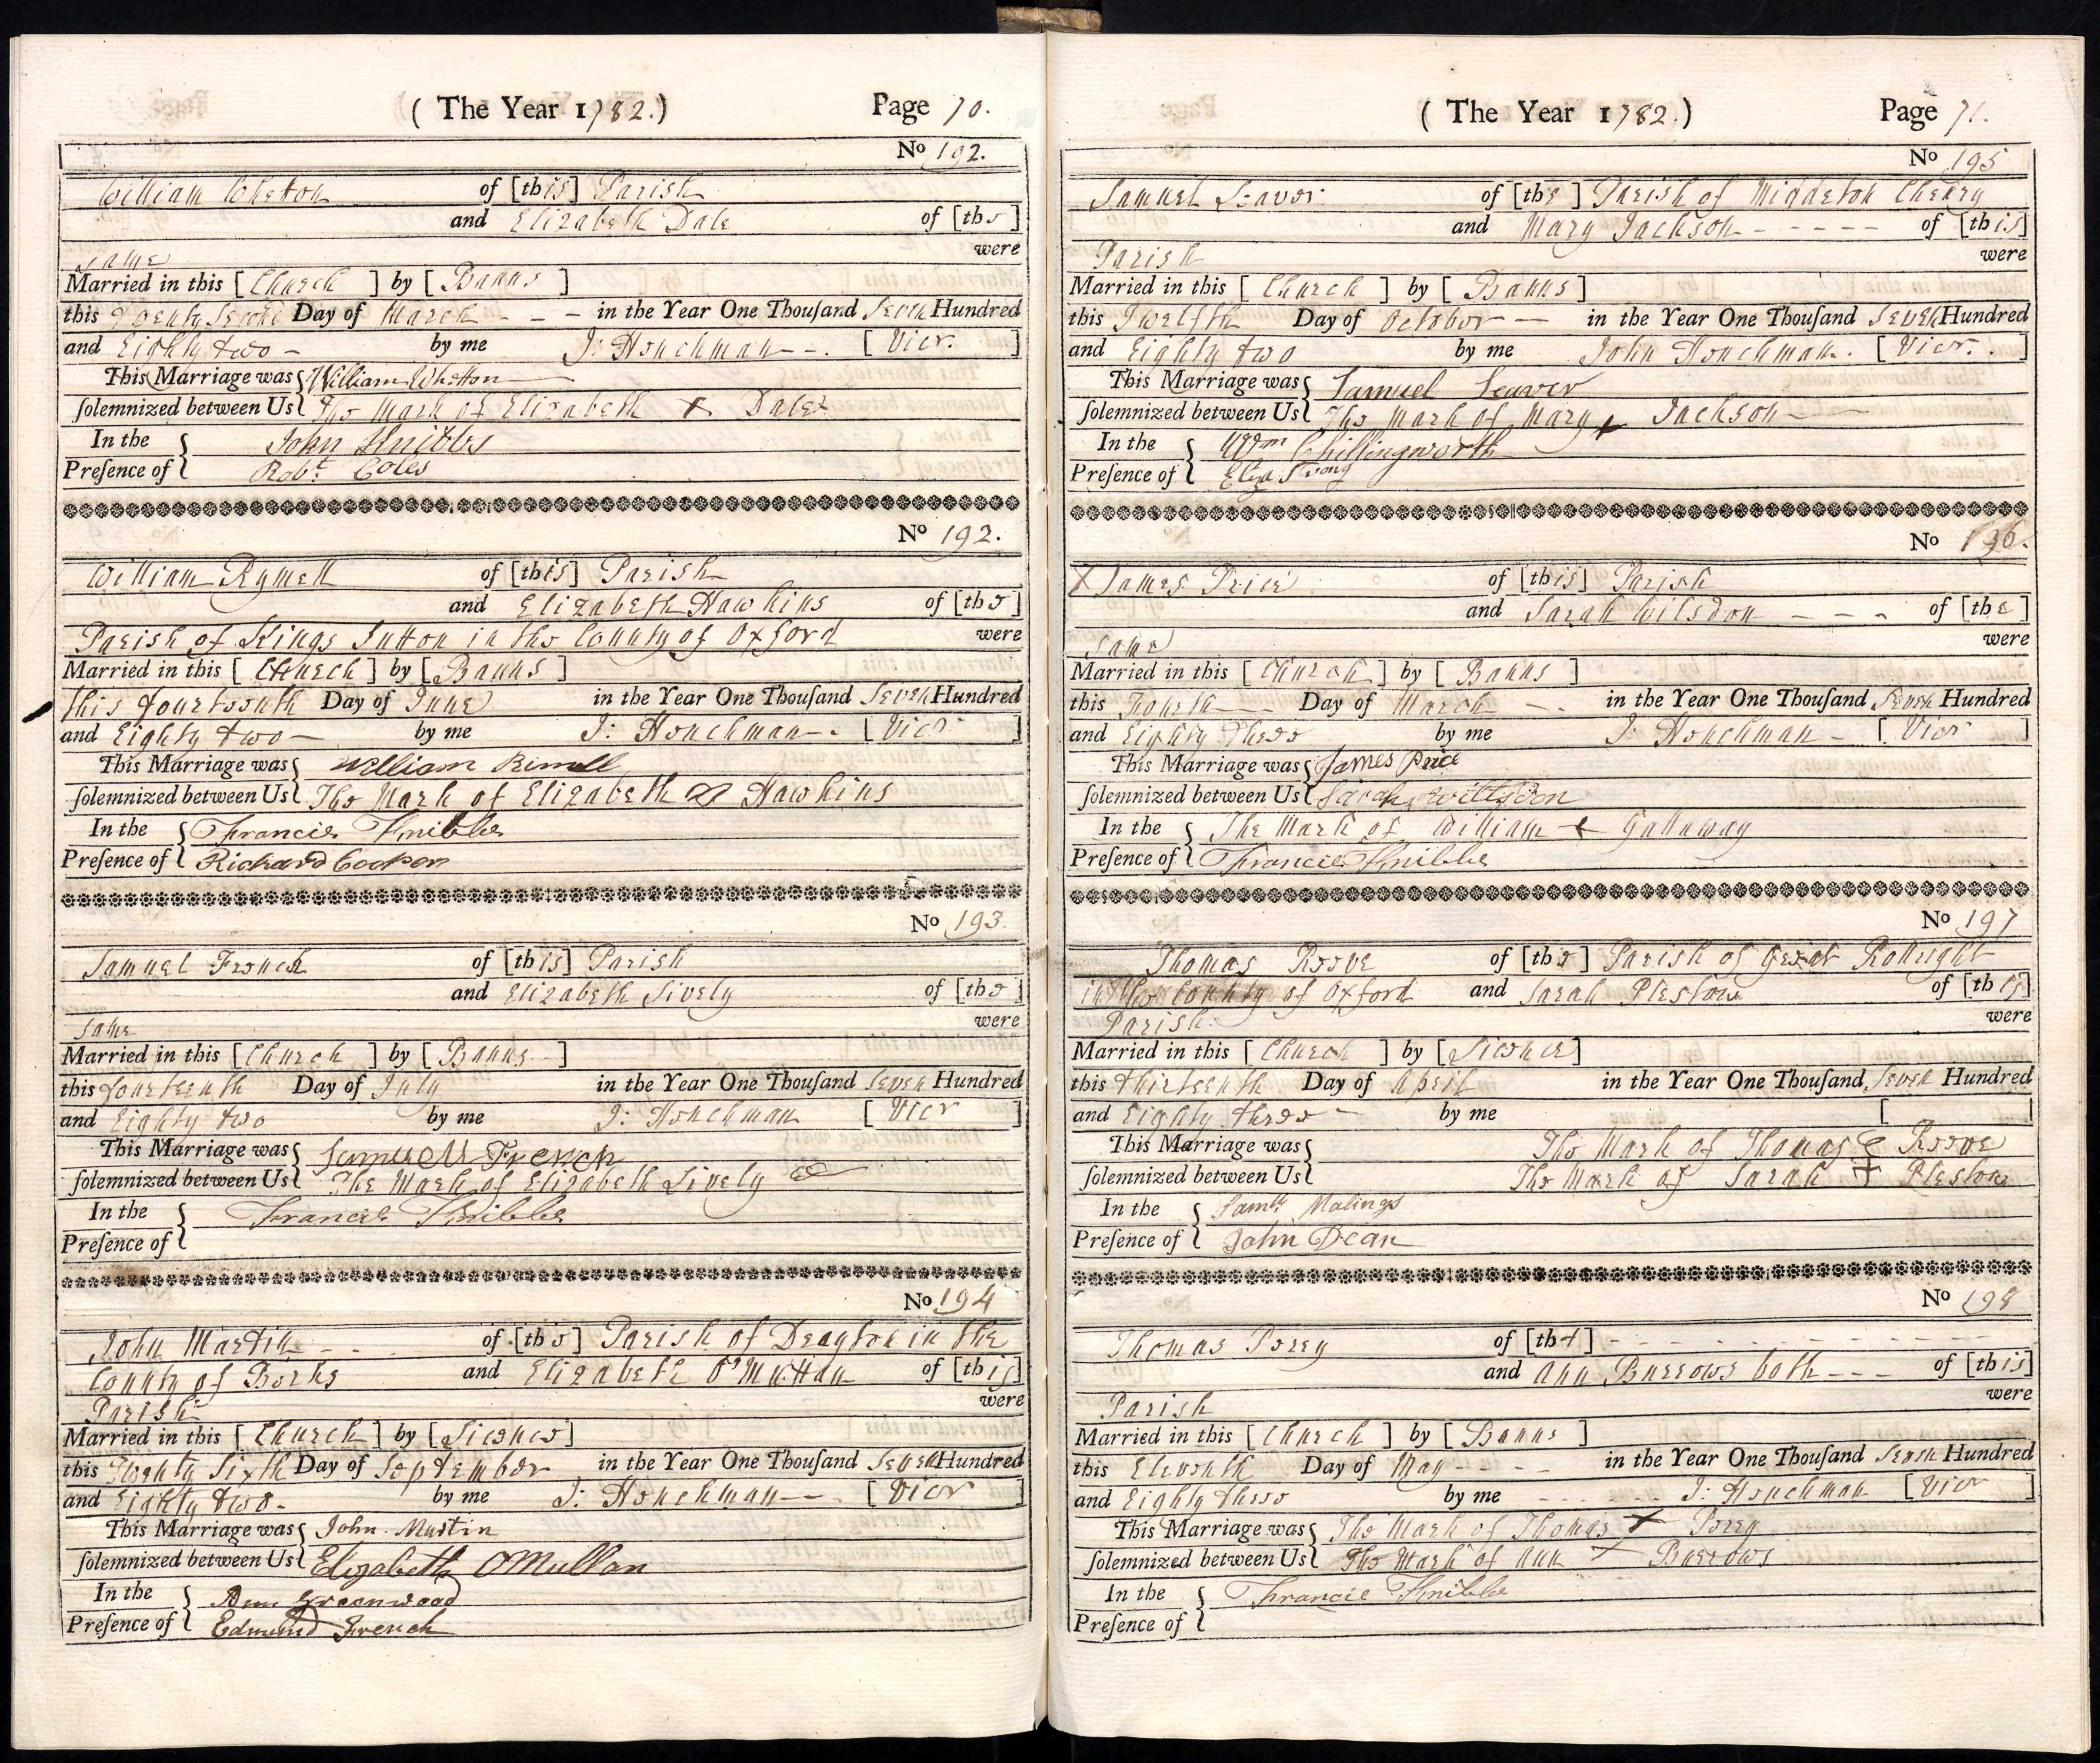 ( The Year 1782.) Page 70.
No 192.
William Wheton of [this] Parish
and Elizabeth Dale of [the]
same were
Married in this [ Church ] by [ Banns ]
this Twenty Second Day of March - - - in the Year One Thouſand Seven Hundred
and Eighty two - by me J: Honchman - - . [ Vicr. ]
This Marriage was William Whetton
ſolemnized between Us The Mark of Elizabeth X Dale
In the John Knibbs
Preſence of Robt. Coles
No 192.
William Rymell of [this] Parish
and Elizabeth Hawkins of [the]
Parish of Kings Sutton in the County of Oxford were
Married in this [ Church ] by [ Banns ]
this fourteenth Day of June in the Year One Thouſand Seven Hundred
and Eighty two - by me J: Honchman - . [ Vicr ]
This Marriage was William Rimell
ſolemnized between Us The Mark of Elizabeth Hawkins
In the Francis Knibbs
Preſence of Richard Cocker
No 193.
Samuel French of [this] Parish
and Elizabeth Lively of [the]
same were
Married in this [ Church ] by [ Banns ]
this fourteenth Day of July in the Year One Thouſand Seven Hundred
and Eighty two by me J: Honchman [ Vicr ]
This Marriage was Samuell French
ſolemnized between Us The Mark of Elizabeth Lively
In the Francis Knibbs
Preſence of
No 194
John Martin - - . of [the] Parish of Drayton in the
County of Berks and Elizabeth O'Mullan of [this]
Parish were
Married in this [ Church ] by [ Licence ]
this Twenty Sixth Day of September in the Year One Thouſand Seven Hundred
and Eighty two - by me J: Honchman - - . [ Vicr ]
This Marriage was John Martin
ſolemnized between Us Elizabeth OMullan
In the Ann Greenwood
Preſence of Edmund French
( The Year 1782.) Page 71.
No 195
Samuel Seavor of [the] Parish of Middleton Cheney
and Mary Jackson - - - - - of [this]
Parish were
Married in this [ Church ] by [ Banns ]
this Twelfth Day of October - in the Year One Thouſand Seven Hundred
and Eighty two by me John Honchman. [ Vicr. ]
This Marriage was Samuel Seaver
ſolemnized between Us The Mark of Mary + Jackson -
In the Wm Chillingworth
Preſence of Eliza Strong
No 196.
X James Price of [this] Parish
and Sarah Wilsdon - - - of [the]
same were
Married in this [ Church ] by [ Banns ]
this Fourth Day of March - - . in the Year One Thouſand Seven Hundred
and Eighty three by me J: Honchman - [ Vicr ]
This Marriage was James Price
ſolemnized between Us Sarah Willsdon
In the The Mark of William + Gallaway
Preſence of Francis Knibbs
No 197
Thomas Reeve of [the] Parish of Great Rollright
in the County of Oxford and Sarah Pleston of [this]
Parish. were
Married in this [ Church ] by [ Licence ]
this thirteenth Day of April in the Year One Thouſand Seven Hundred
and Eighty three - by me [ ]
This Marriage was The Mark of Thomas Reeve
ſolemnized between Us The Mark of Sarah + Pleston
In the Samll Malings
Preſence of John Dean
No 198
Thomas Perry of [the]
and Ann Burrows both - - - of [this]
Parish were
Married in this [ Church ] by [ Banns ]
this Eleventh Day of May - - - - in the Year One Thouſand Seven Hundred
and Eighty three by me - - - - - J: Honchman [ Vicr ]
This Marriage was The Mark of Thomas X Perry
ſolemnized between Us The Mark of Ann X Burrows
In the Francis Knibbs
Preſence of